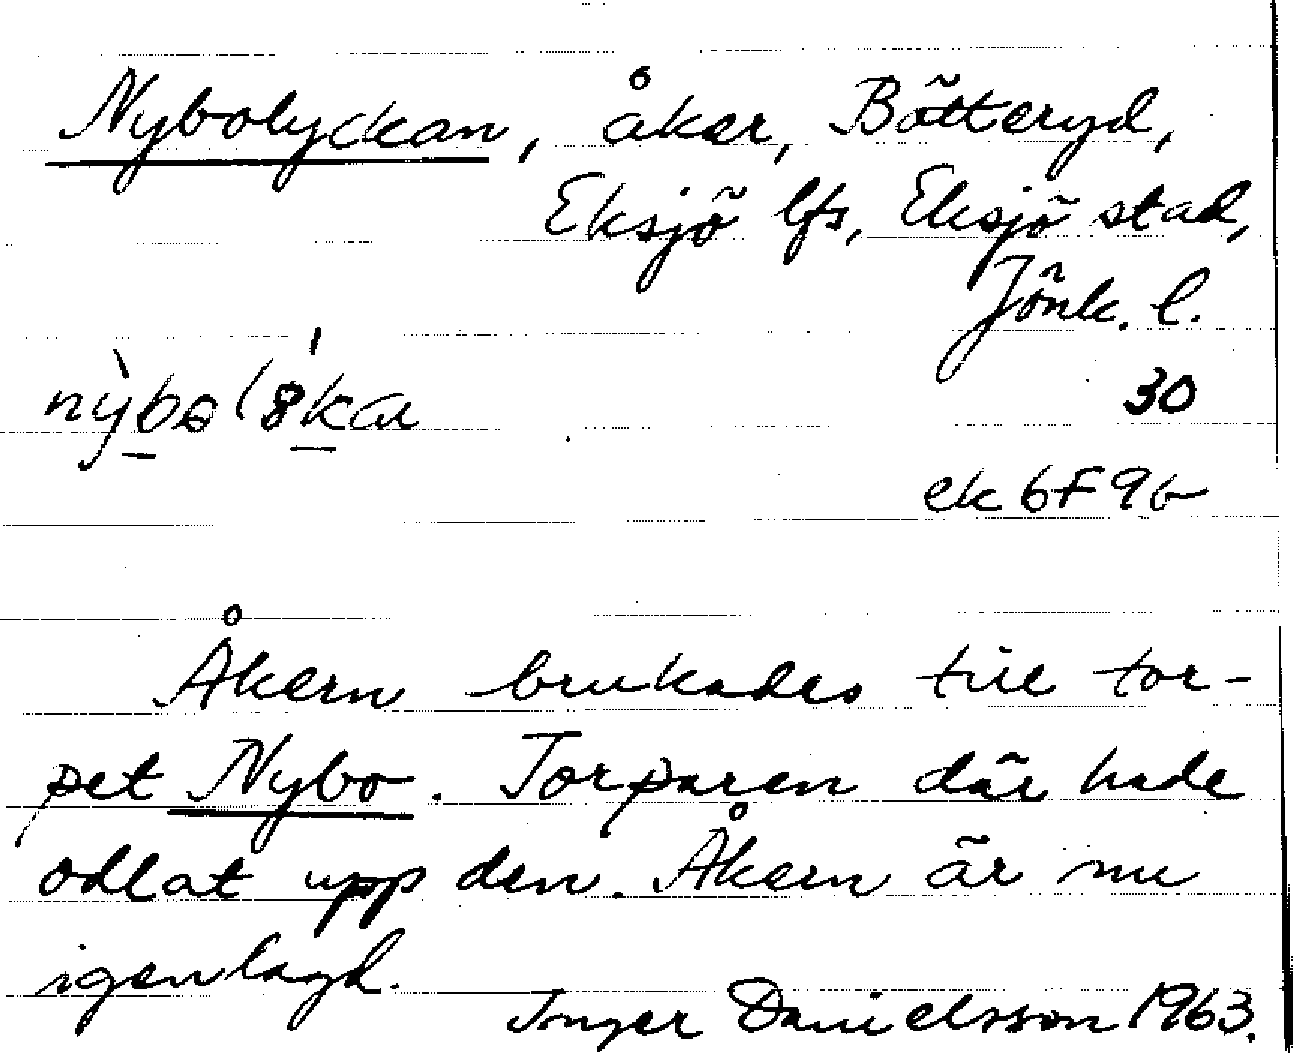 Nybolyckan, åker, Bötteryd,
Eksjö lfs, Eksjö stad,
Jönk. l.
30
ek 6F9b
Åkern brukades till tor-
pet Nybo. Torparen där hade
odlat upp den. Åkern är nu
igenlagd.
Inger Danielsson 1963.